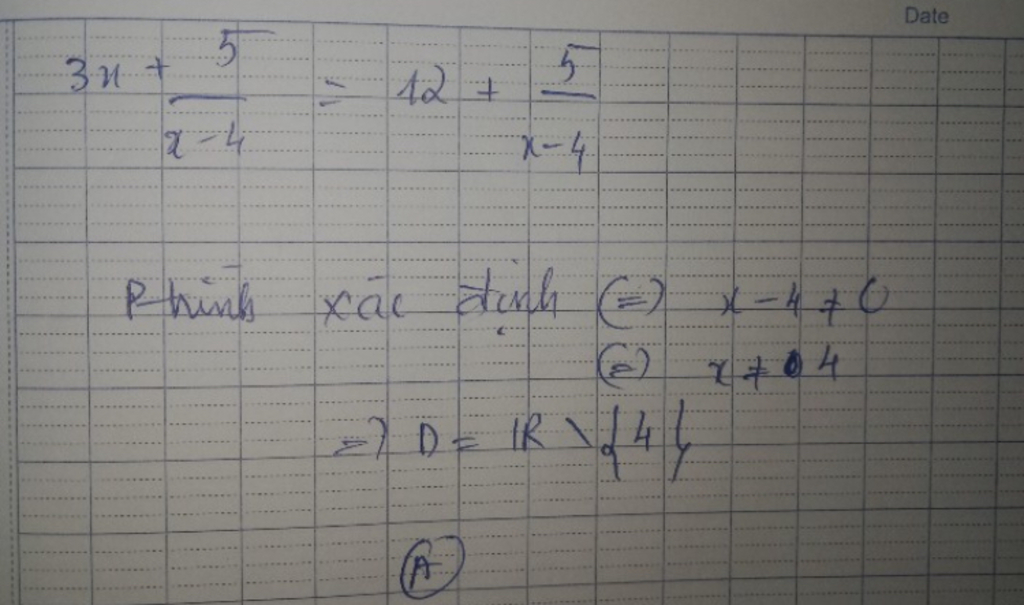 Date
3x + 5/(x-4) = 12 + 5/(x-4)
P-trình xác định (=) x - 4 ≠ 0
(=) x ≠ 4
=> D = IR \ {4}
A